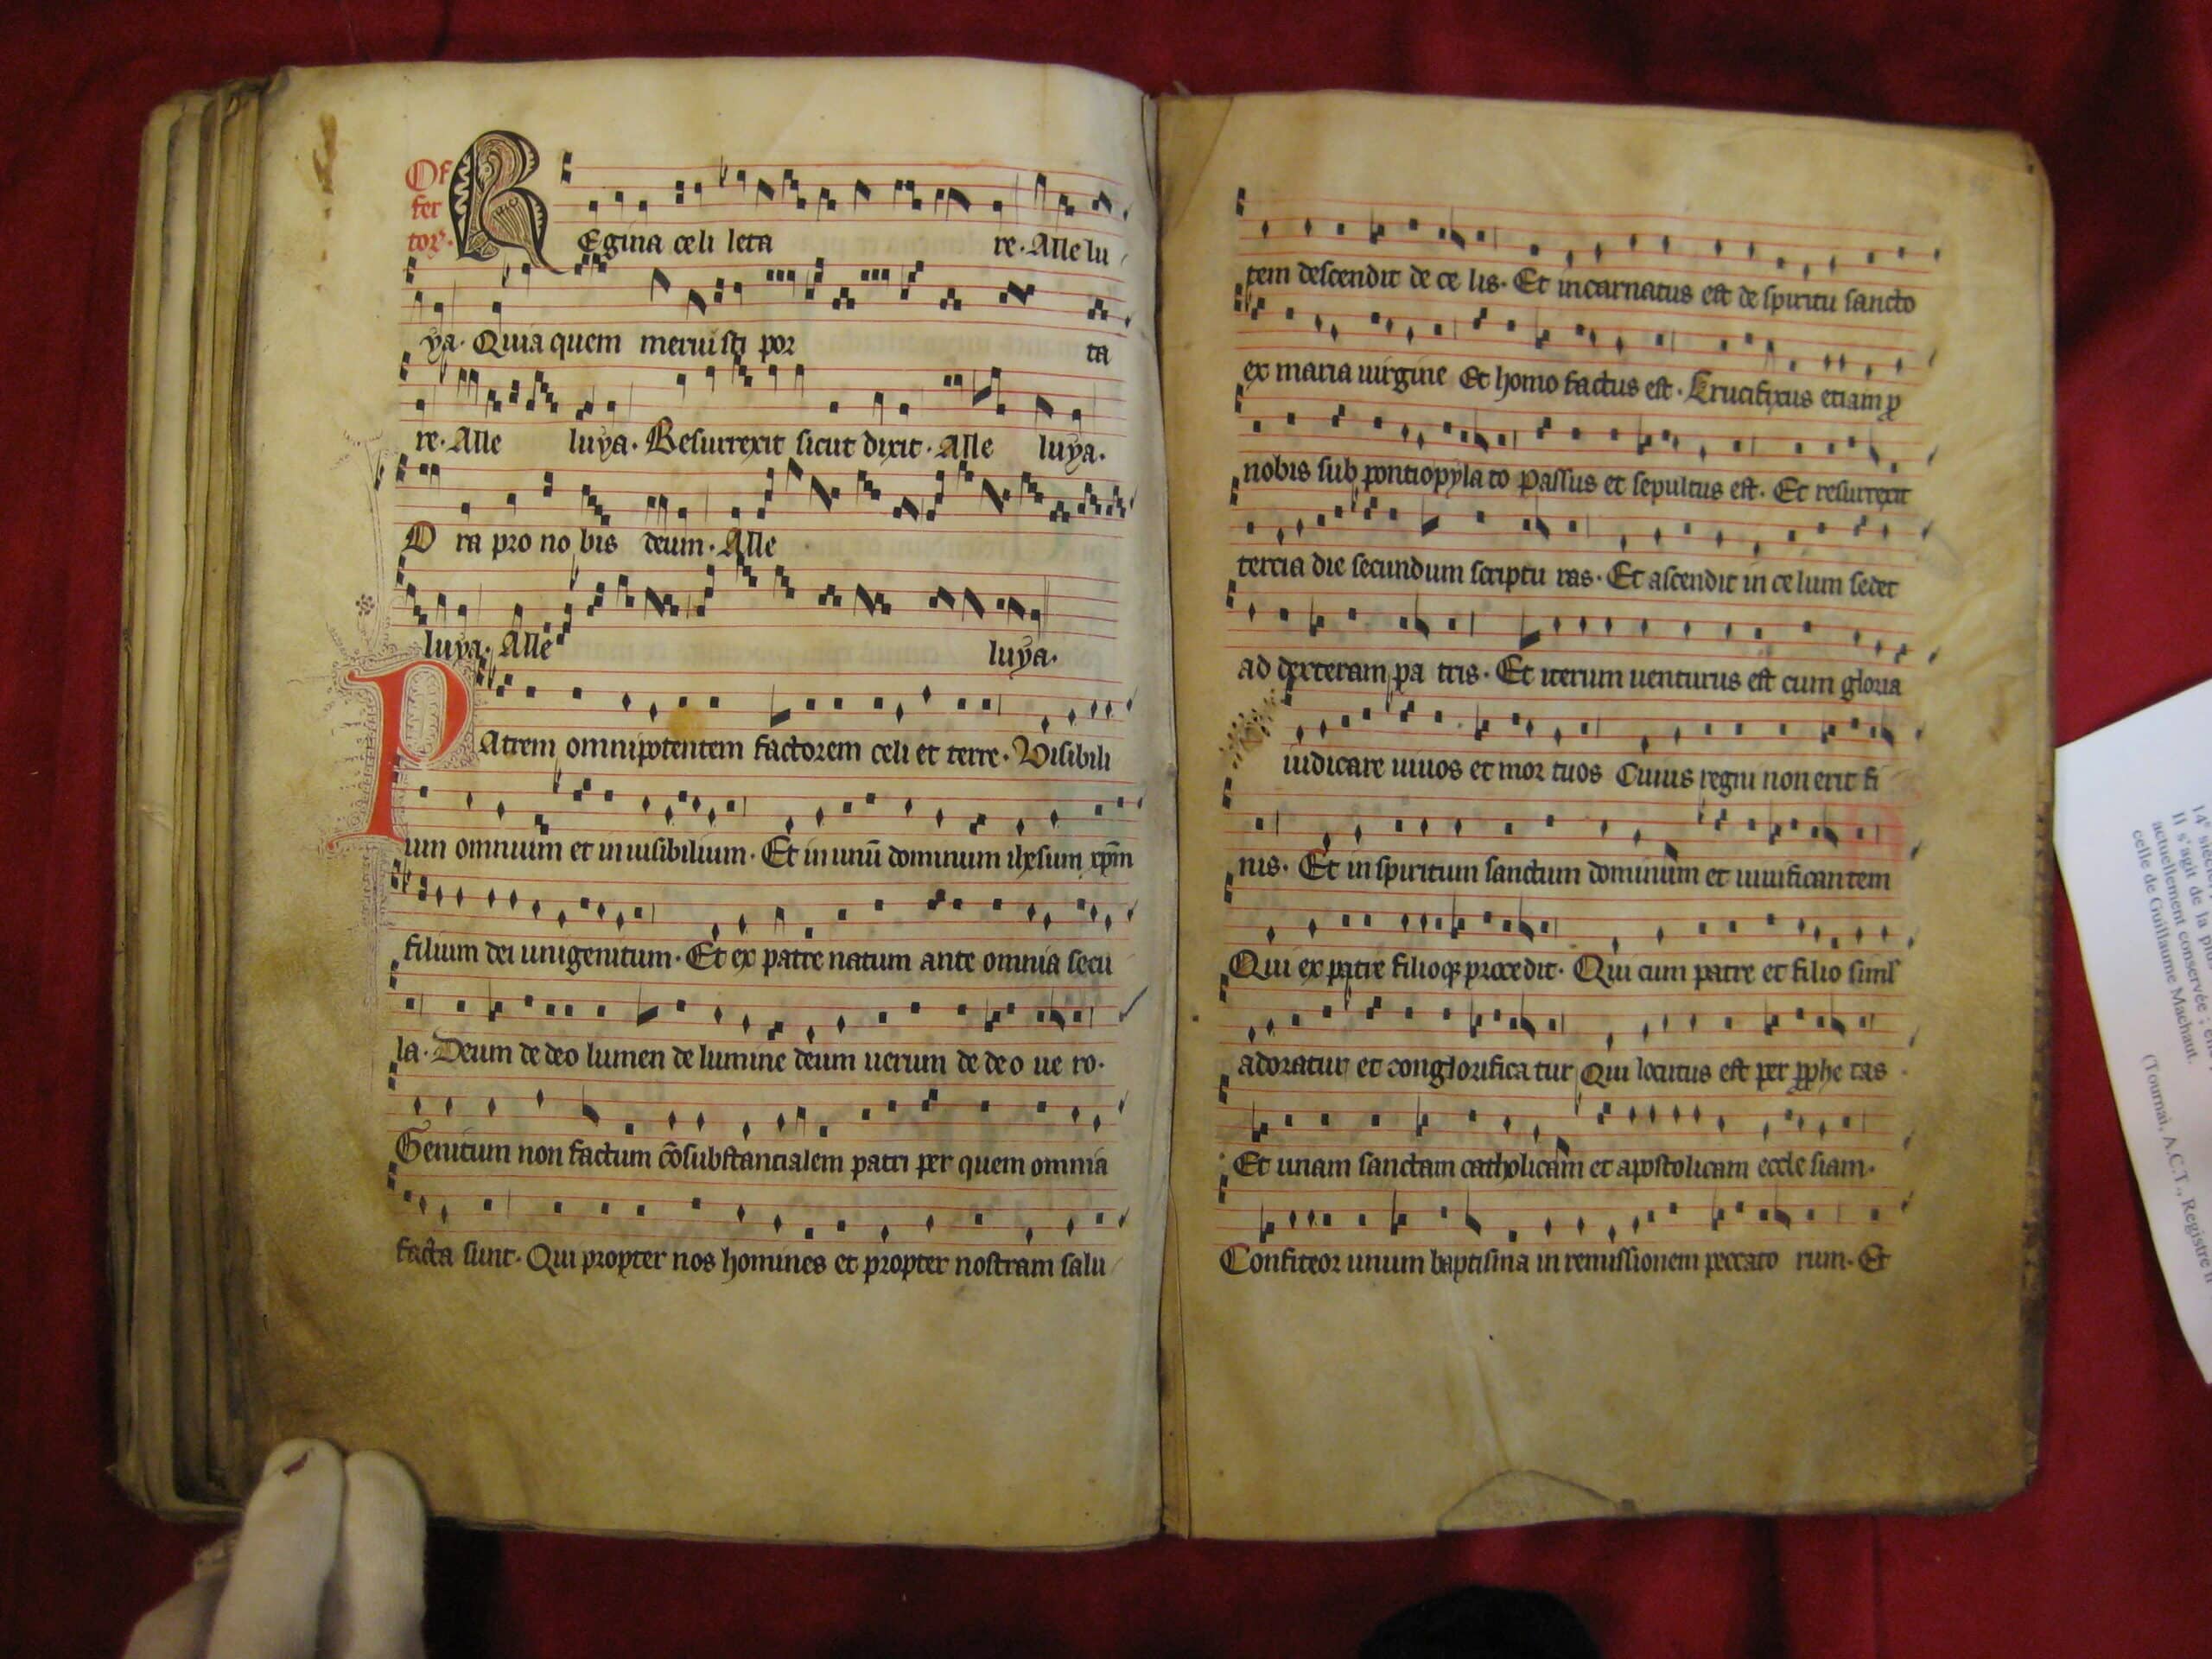 Of
fer
tor.
REgina celi leta re. Alle lu
ya. Quia quem meruisti por ta
re. Alle luya. Resurrexit sicut dixit. Alle luya.
O ra pro no bis deum. Alle
luya. Alle luya.
PAtrem omnipotentem factorem celi et terre. Visibili
um omnium et inuisibilium. Et in unū dominum ihesum xpm̄
filium dei unigenitum. Et ex patre natum ante omnia secu
la. Deum de deo lumen de lumine deum uerum de deo ue ro.
Genitum non factum cōsubstantialem patri per quem omnia
facta sunt. Qui propter nos homines et propter nostram salu
tem descendit de ce lis. Et incarnatus est de spiritu sancto
ex maria uirgine Et homo factus est. Crucifixus etiam ꝑ
nobis sub pontiopyla to passus et sepultus est. Et resurrexit
tercia die secundum scriptu ras. Et ascendit in ce lum sedet
ad dexteram pa tris. Et iterum uenturus est cum gloria
iudicare uiuos et mor tuos Cuius regni non erit fi
nis. Et in spiritum sanctum dominum et uiuificantem
Qui ex patre filioqꝫ procedit. Qui cum patre et filio simł
adoratur et conglorifica tur Qui locutus est per ꝓphe tas
Et unam sanctam catholicam et apostolicam eccle siam.
Confiteor unum baptisma in remissionem peccato rum. Et
14e
Il s'agit de la plus
actuellement conservée ;
celle de Guillaume Machaut.
(Tournai, A.C.T., Registre